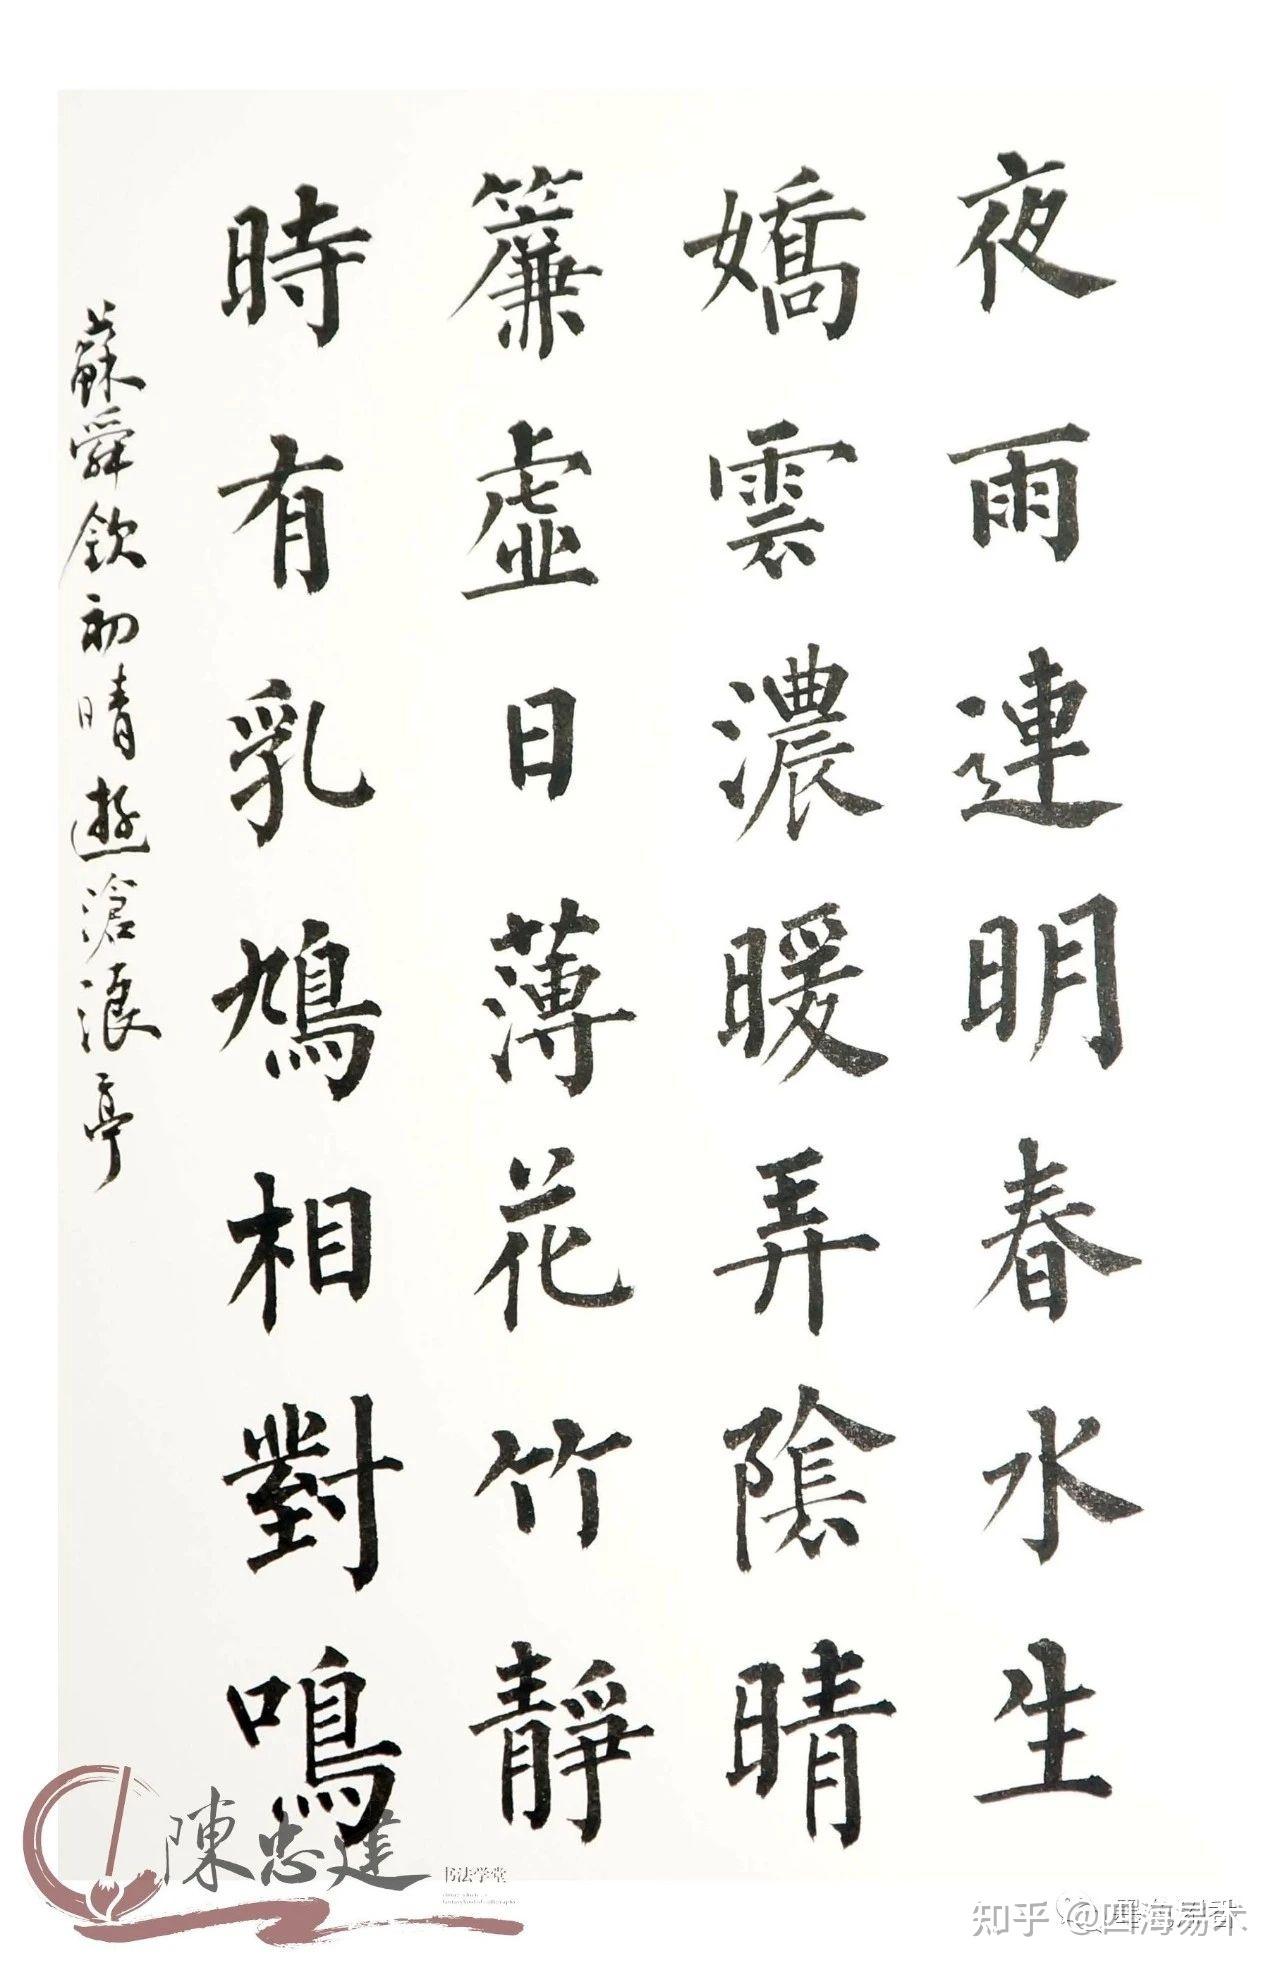 夜雨連明春水生
嬌雲濃暖弄陰晴
簾虛日薄花竹靜
時有乳鳩相對鳴
蘇舜欽初晴遊滄浪亭
陳忠建
书法学堂
知乎 @四海易术